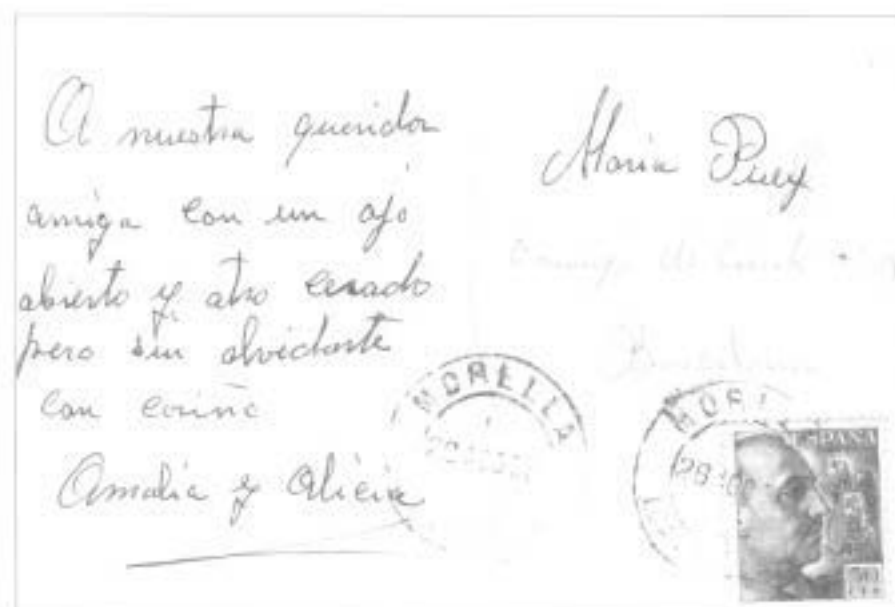 A nuestra querida
amiga con un ojo
abierto y otro cerado
pero sin olvidarte
con cariño
Amalia y Alicia
Maria Puey
Barcelona
MORELLA
MOREL
ESPAÑA